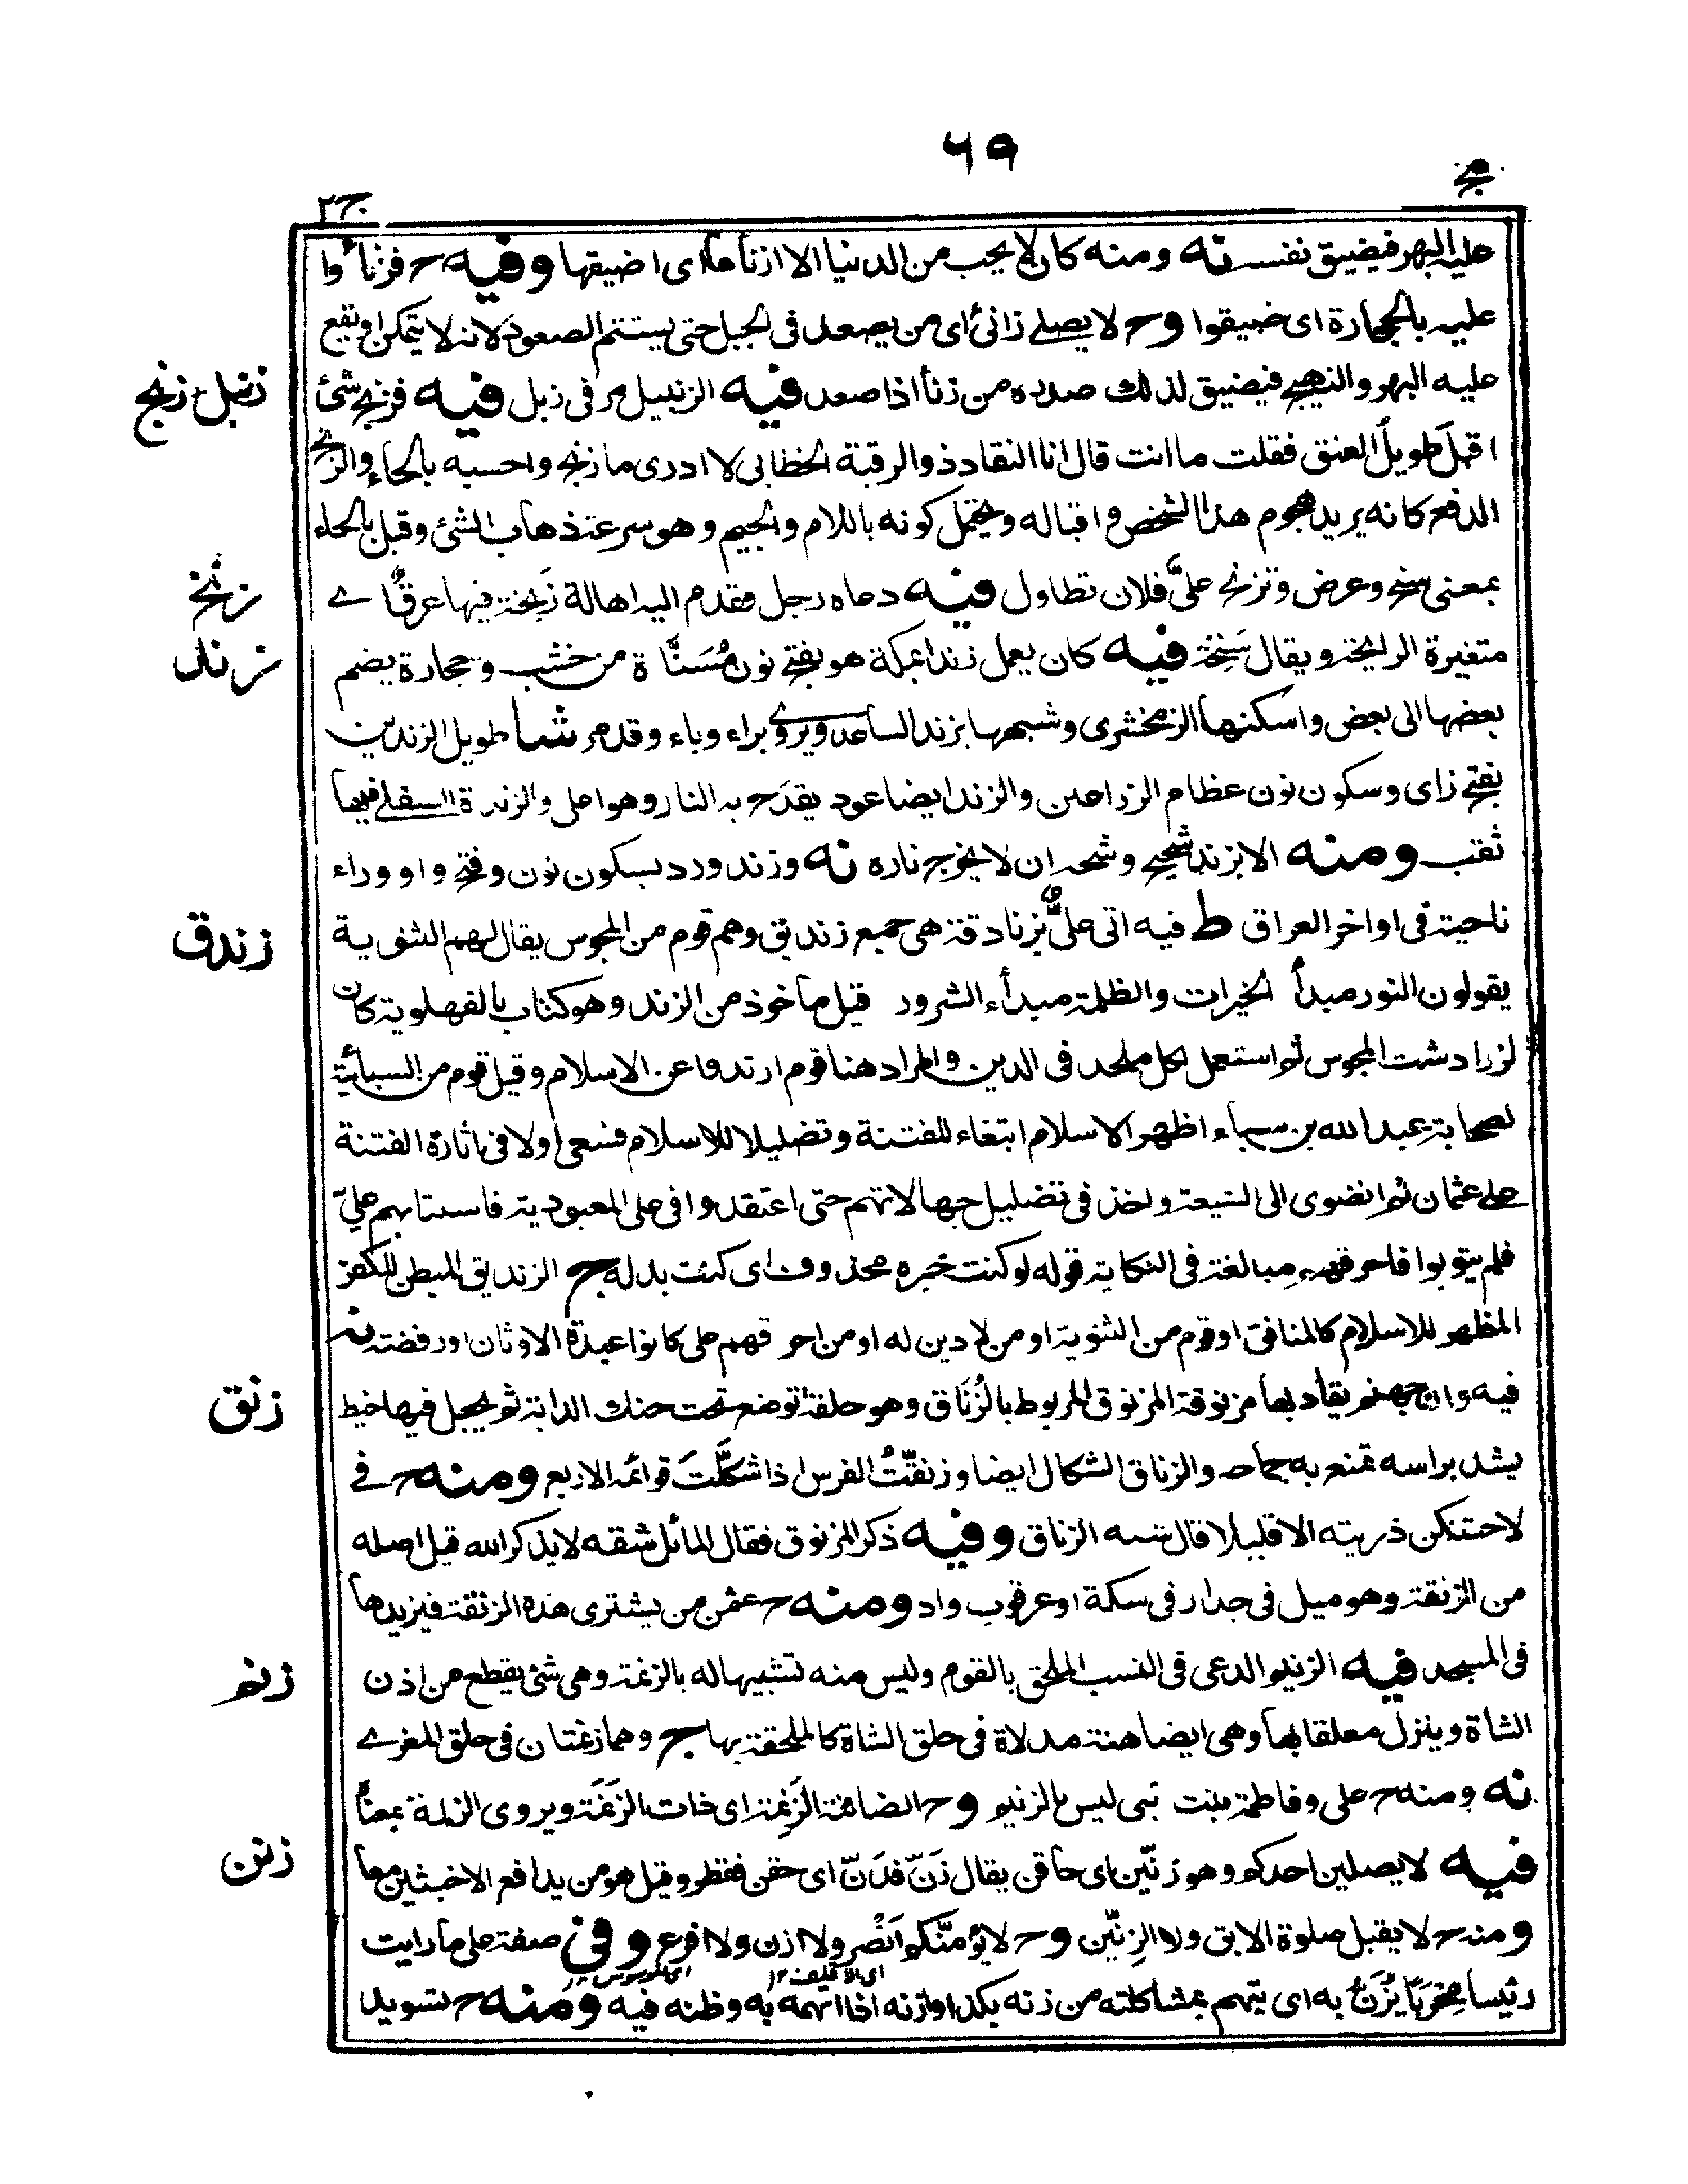 ٦٩
مج
ج٢
عليه البهر فيضيق نفسه نه ومنه كان لا يحب من الدنيا الا ازنأها اى اضيقها وفيه ح فزنأوا
عليه بالحجارة اى ضيقوا وح لا يصلے زانئ اى من يصعد فى الجبل حتى يستتم الصعود لانه لا يتمكن او يقع
عليه البهر والنهيج فيضيق لذلك صدره من زنأ اذا صعد فيه الزنبيل مر فى زبل فيه فزنج شئ
زنبل زنج
اقبل طويل العنق فقلت ما انت قال انا النقاد ذو الرقبة الخطابى لا ادرى ما زنج واحسبه بالحاء والزنح
الدفع كانه يريد هجوم هذا الشخص واقباله ويحتمل كونه باللام والجيم وهو سرعة ذهاب الشئ وقيل بالحاء
بمعنى سنح وعرض وتزنح علىّ فلان تطاول فيه دعاه رجل فقدم اليه اهالة زَنِخة فيها عرق اے
زنخ
متغيرة الرائحة ويقال سَنِخة فيه كان يعمل زندا بمكة هو بفتح نون مُسَنَّاة من خشب وحجارة يضم
زند
بعضها الى بعض واسكنها الزمخشرى وشبهها بزند الساعد ويروے براء وباء وقد مر شما طويل الزندين
بفتح زاى وسكون نون عظام الذراعين والزند ايضا عود يقدح به النار وهو اعلى والزندة السفلے فيها
ثقب ومنه الا بزند شحيح وشحه ان لا يخرج ناره نه وزندورد بسكون نون وفتح واو وراء
ناحية فى اواخر العراق ط فيه اتى علىٌّ بزنادقة هى جمع زنديق وهم قوم من المجوس يقال لهم الثنوية
زندق
يقولون النور مبدأ الخيرات والظلمة مبدأء الشرور قيل ماخوذ من الزند وهو كتاب بالفهلوية كان
لزرادشت المجوس ثم استعمل لكل ملحد فى الدين والمراد هنا قوم ارتدوا عن الاسلام وقيل قوم من السبائية
لصحابة عبد الله بن سباء اظهر الاسلام ابتغاء للفتنة وتضليلا للاسلام فسعى اولا فى اثارة الفتنة
علے عثمان ثم انضوى الى الشيعة واخذ فى تضليل جهالاتهم حتى اعتقدوا فى على المعبودية فاستتابهم علىّ
فلم يتوبوا فاحرقهم مبالغة فى النكاية قوله لو كنت خبره محذوف اى كنت بدله ج الزنديق المبطن للكفر
المظهر للاسلام كالمنافق او قوم من الثنوية او من لا دين له او من احرقهم على كانوا عبدة الاوثان او رفضة نه
فيه وان جهنم يقاد بها مزنوقة المزنوق المربوط بالزُنَاق وهو حلقة توضع تحت حنك الدابة ثم يجعل فيها خيط
زنق
يشد براسه تمنع به جماحه والزناق الشكال ايضا وزنقتُ الفرس اذا شكَّلتَ قوائمه الاربع ومنه ح فے
لاحتنكن ذريته الا قليلا قال شبه الزناق وفيه ذكر المزنوق فقال المائل شقه لا يذكر الله قيل اصله
من الزنقة وهو ميل فى جدار فى سكة او عرقوب واد ومنه ح عثمن من يشترى هذه الزنقة فيزيدها
فى المسجد فيه الزنيم الدعى فى النسب الملحق بالقوم وليس منه تشبيها له بالزنمة وهى شئ يقطع من اذن
زنم
الشاة ويترك معلقا بها وهى ايضا هنة مدلاة فى حلق الشاة كالملحقة بها ج وهما زنمتان فى حلق المعزے
نه ومنه ح على وفاطمة بنت نبى ليس بالزنيم وح الضائنة الزَنِمة اى ذات الزَنَمَة ويروى الزلمة بمعناه
فيه لا يصلين احدكم وهو زنّين اى حاقن يقال زَنّ فذنّ اى حقن فقطر وقيل هو من يدافع الاخبثين معا
زنن
ومنه ح لا يقبل صلوة الابق ولا الزنّين وح لا يؤمنّكم انصر ولا ازن ولا افرع وفى صفة على ما رايت
اى الاقلف ١٢
اى الموسوس ١٢
رئيسا محربا يُزَنُّ به اى يتهم بمشاكلته من زنه بكذا وازنه اذا اتهمه به وظنه فيه ومنه ح تسويد